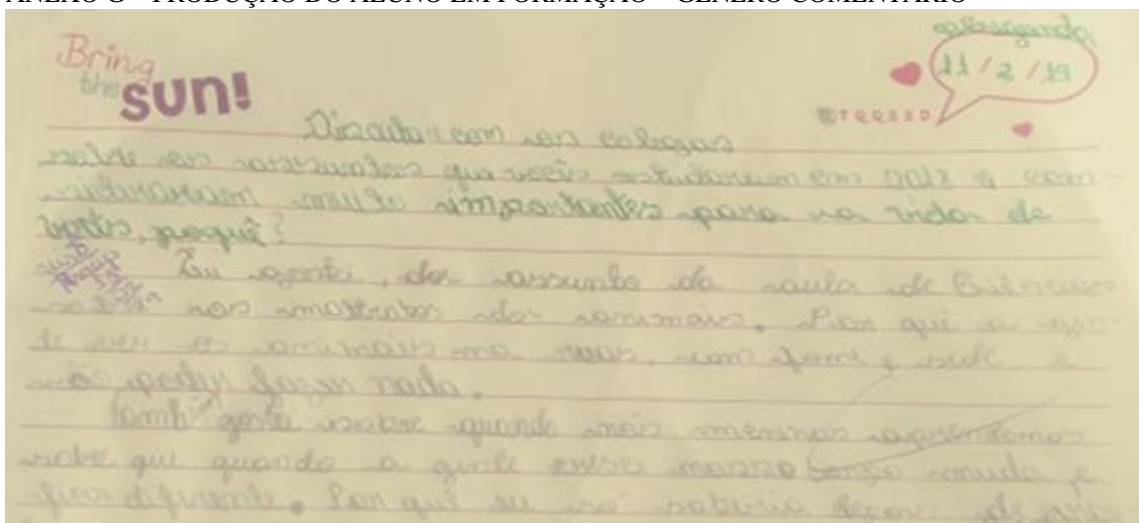 ANEXO C – PRODUÇÃO DO ALUNO EM FORMAÇÃO – GÊNERO COMENTÁRIO
Bring
the sun!
11/2/19
Discutar com os colegas
sobre os assuntos que vocês estudaram em 2018 e con-
sideraram muito importantes para a vida de
vocês, poquê?
Eu gostei, do assunto da aula de Ciências
sobre aos mostratos dos animais. Por quê a gen-
te ver os animais na ruas, com fome e sede, e
não poder fazer nada.
gostei sobre quando nois meninas aprendemos
sobre que quando a gente cresce nosso muda, e
fica diferente. Por quê eu só saberia depois